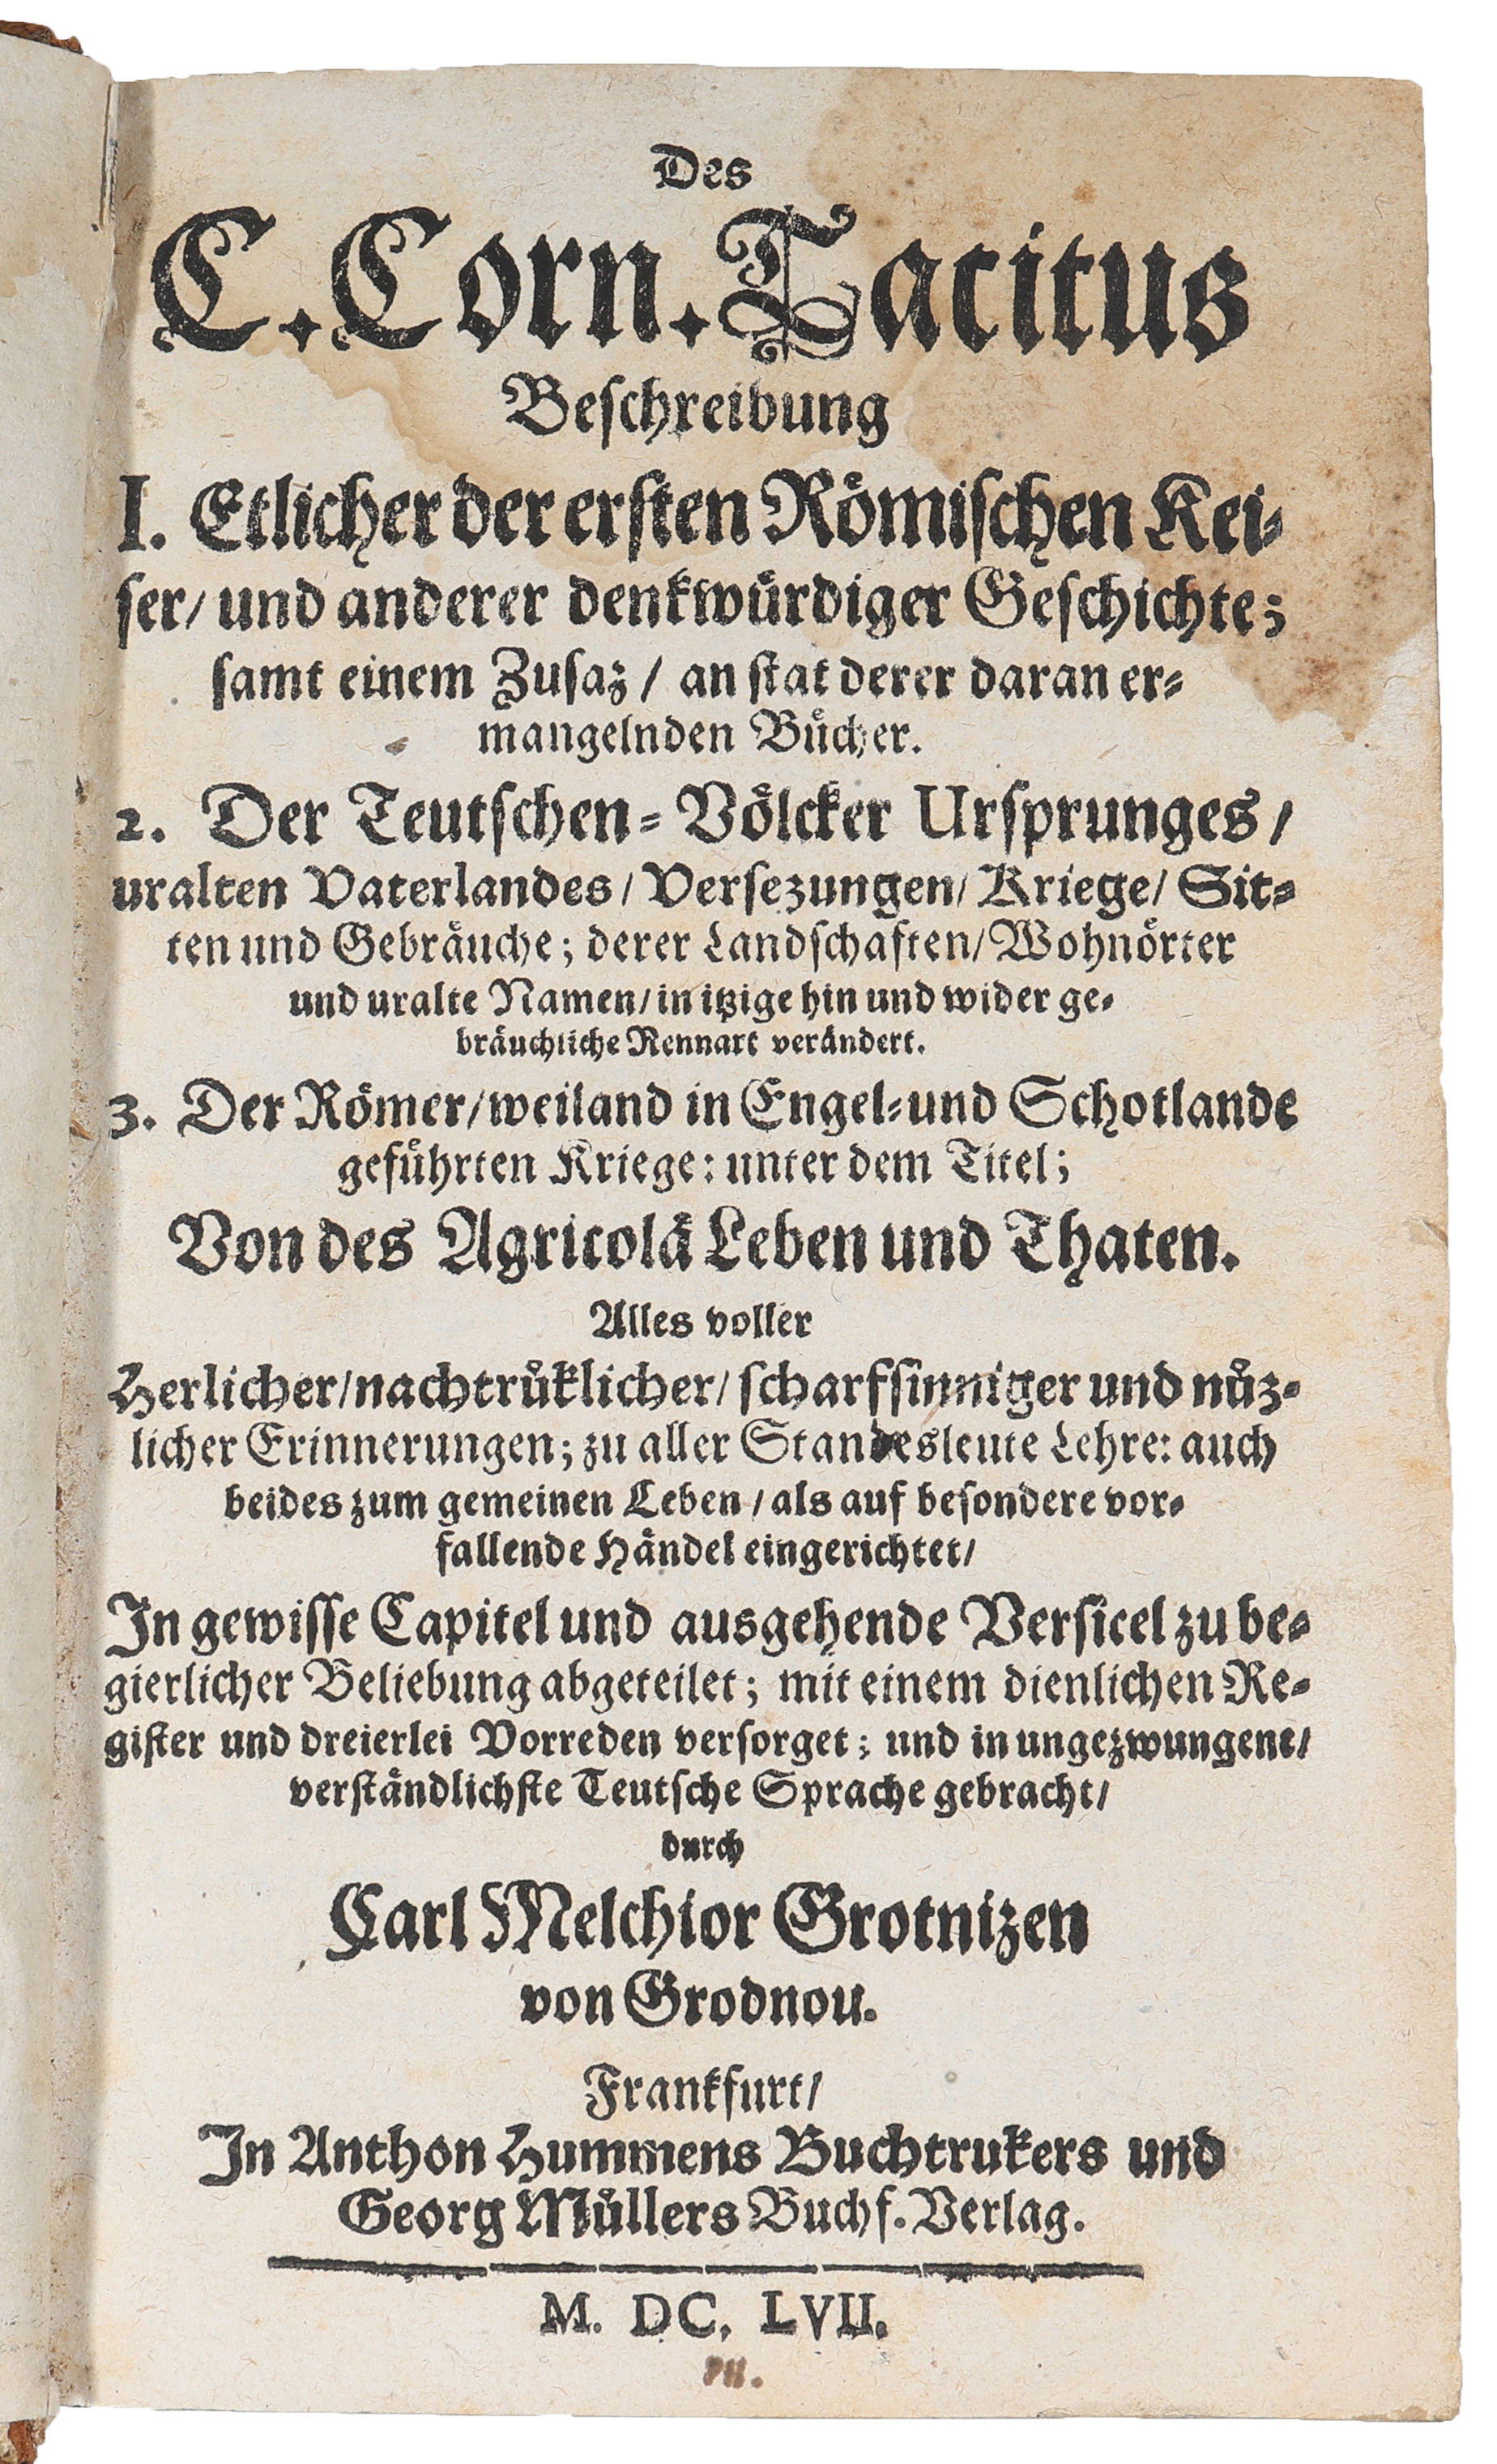 Des
C. Corn. Tacitus
Beſchreibung
I. Etlicher der erſten Roͤmiſchen Kei⸗
ſer/ und anderer denkwuͤrdiger Geſchichte;
ſamt einem Zuſaz / an ſtat derer daran er⸗
mangelnden Buͤcher.
2. Der Teutſchen⸗Voͤlcker Urſprunges /
uralten Vaterlandes/ Verſezungen/ Kriege/ Sit⸗
ten und Gebraͤuche; derer Landſchaften/ Wohnoͤrter
und uralte Namen/ in itzige hin und wider ge⸗
braͤuchliche Nennart veraͤndert.
3. Der Roͤmer/ weiland in Engel⸗ und Schotlande
gefuͤhrten Kriege: unter dem Titel;
Von des Agricolaͤ Leben und Thaten.
Alles voller
Herlicher/ nachtruͤklicher/ ſcharfſinniger und nuͤz⸗
licher Erinnerungen; zu aller Standesleute Lehre: auch
beides zum gemeinen Leben / als auf beſondere vor⸗
fallende Haͤndel eingerichtet/
In gewiſſe Capitel und ausgehende Verſicel zu be⸗
gierlicher Beliebung abgeteilet; mit einem dienlichen Re⸗
giſter und dreierlei Vorreden verſorget; und in ungezwungene/
verſtaͤndlichſte Teutſche Sprache gebracht/
durch
Carl Melchior Grotnizen
von Grodnou.
Frankfurt/
In Anthon Hummens Buchtrukers und
Georg Muͤllers Buchf. Verlag.
M. DC. LVII.